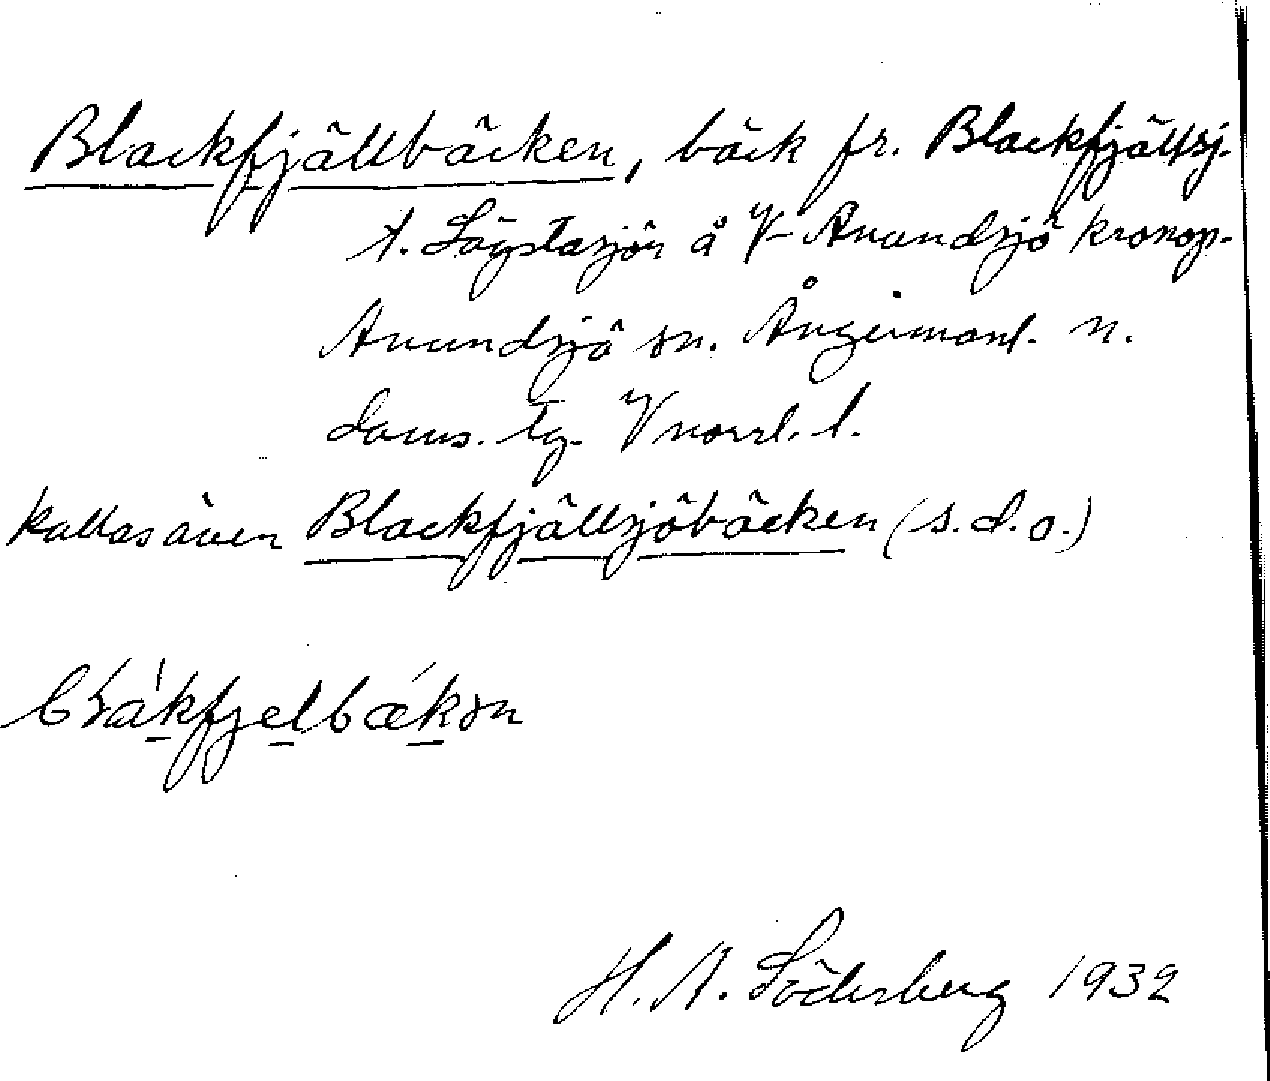 Blackfjällbäcken, bäck fr. Blackfjällsj.
t. Lägstasjön å V Anundsjö kronop.
Anundsjö sn. Ångermanl. n.
doms. tg. Vnorrl. l.
kallas även Blackfjällsjöbäcken (s.d.o.)
H. A. Söderberg 1932